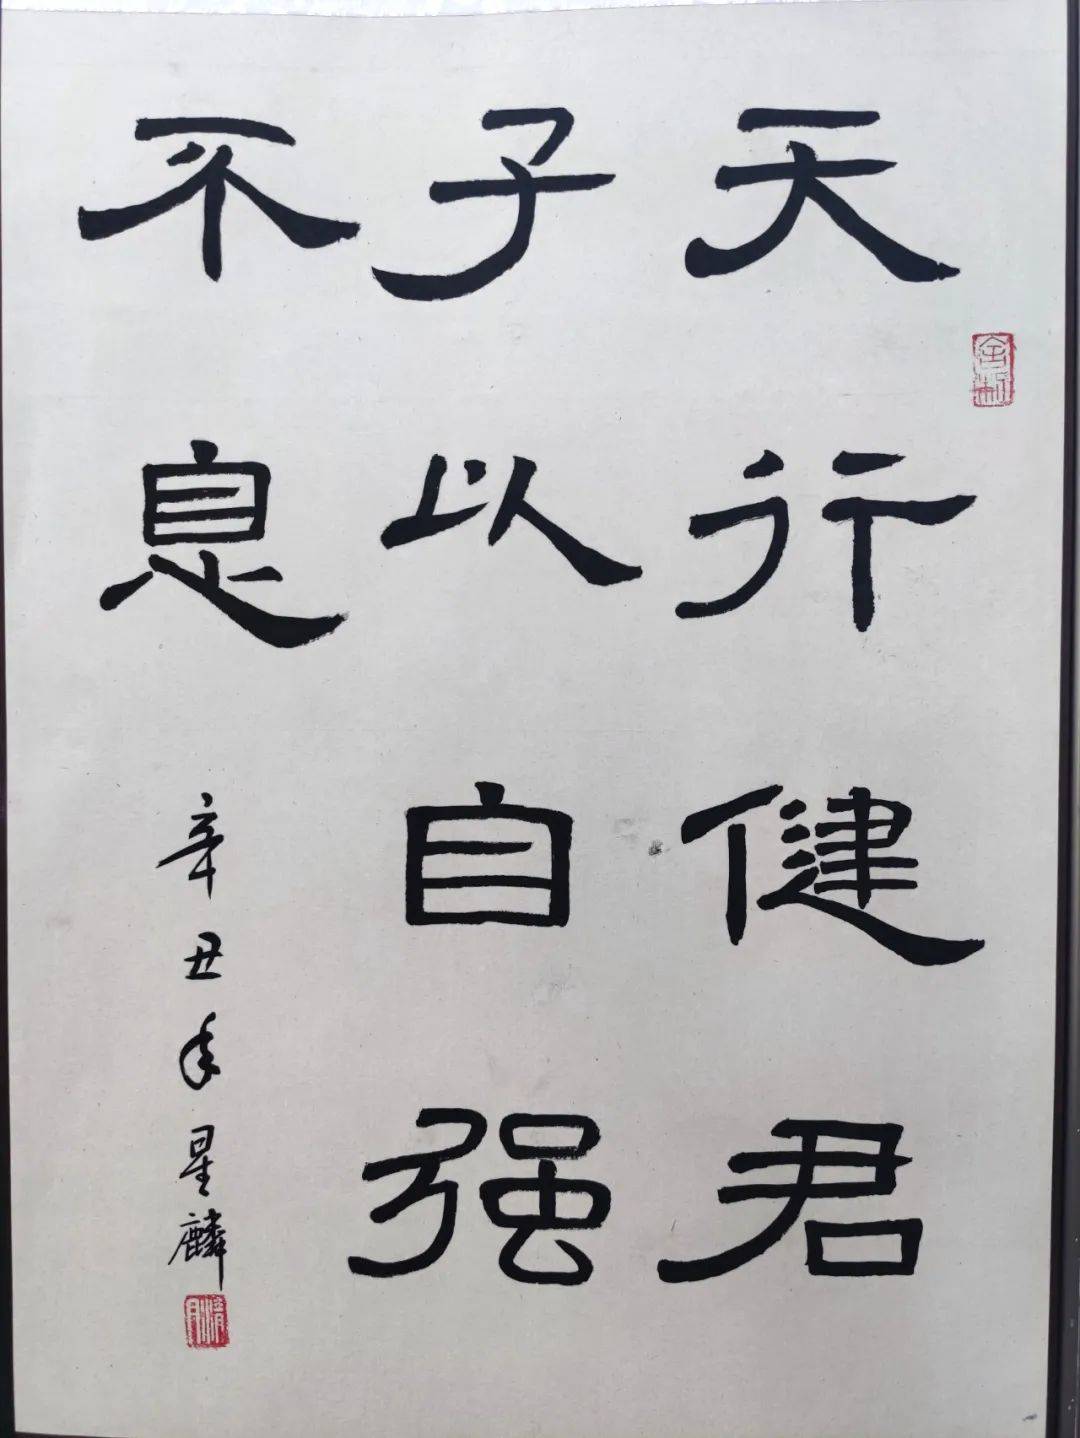 天行健君
子以自强
不息
辛丑年星麟